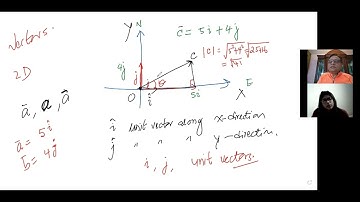 Vectors:
2D
ā, a, â
ā = 5i
b̄ = 4j
Y N
c̄ = 5i + 4j
|c| = √5²+4² = √25+16
= √41
C
4j
j
θ
O
i
5i
X
E
î unit vector along x-direction
ĵ " " " y-direction.
i, j, unit vectors.